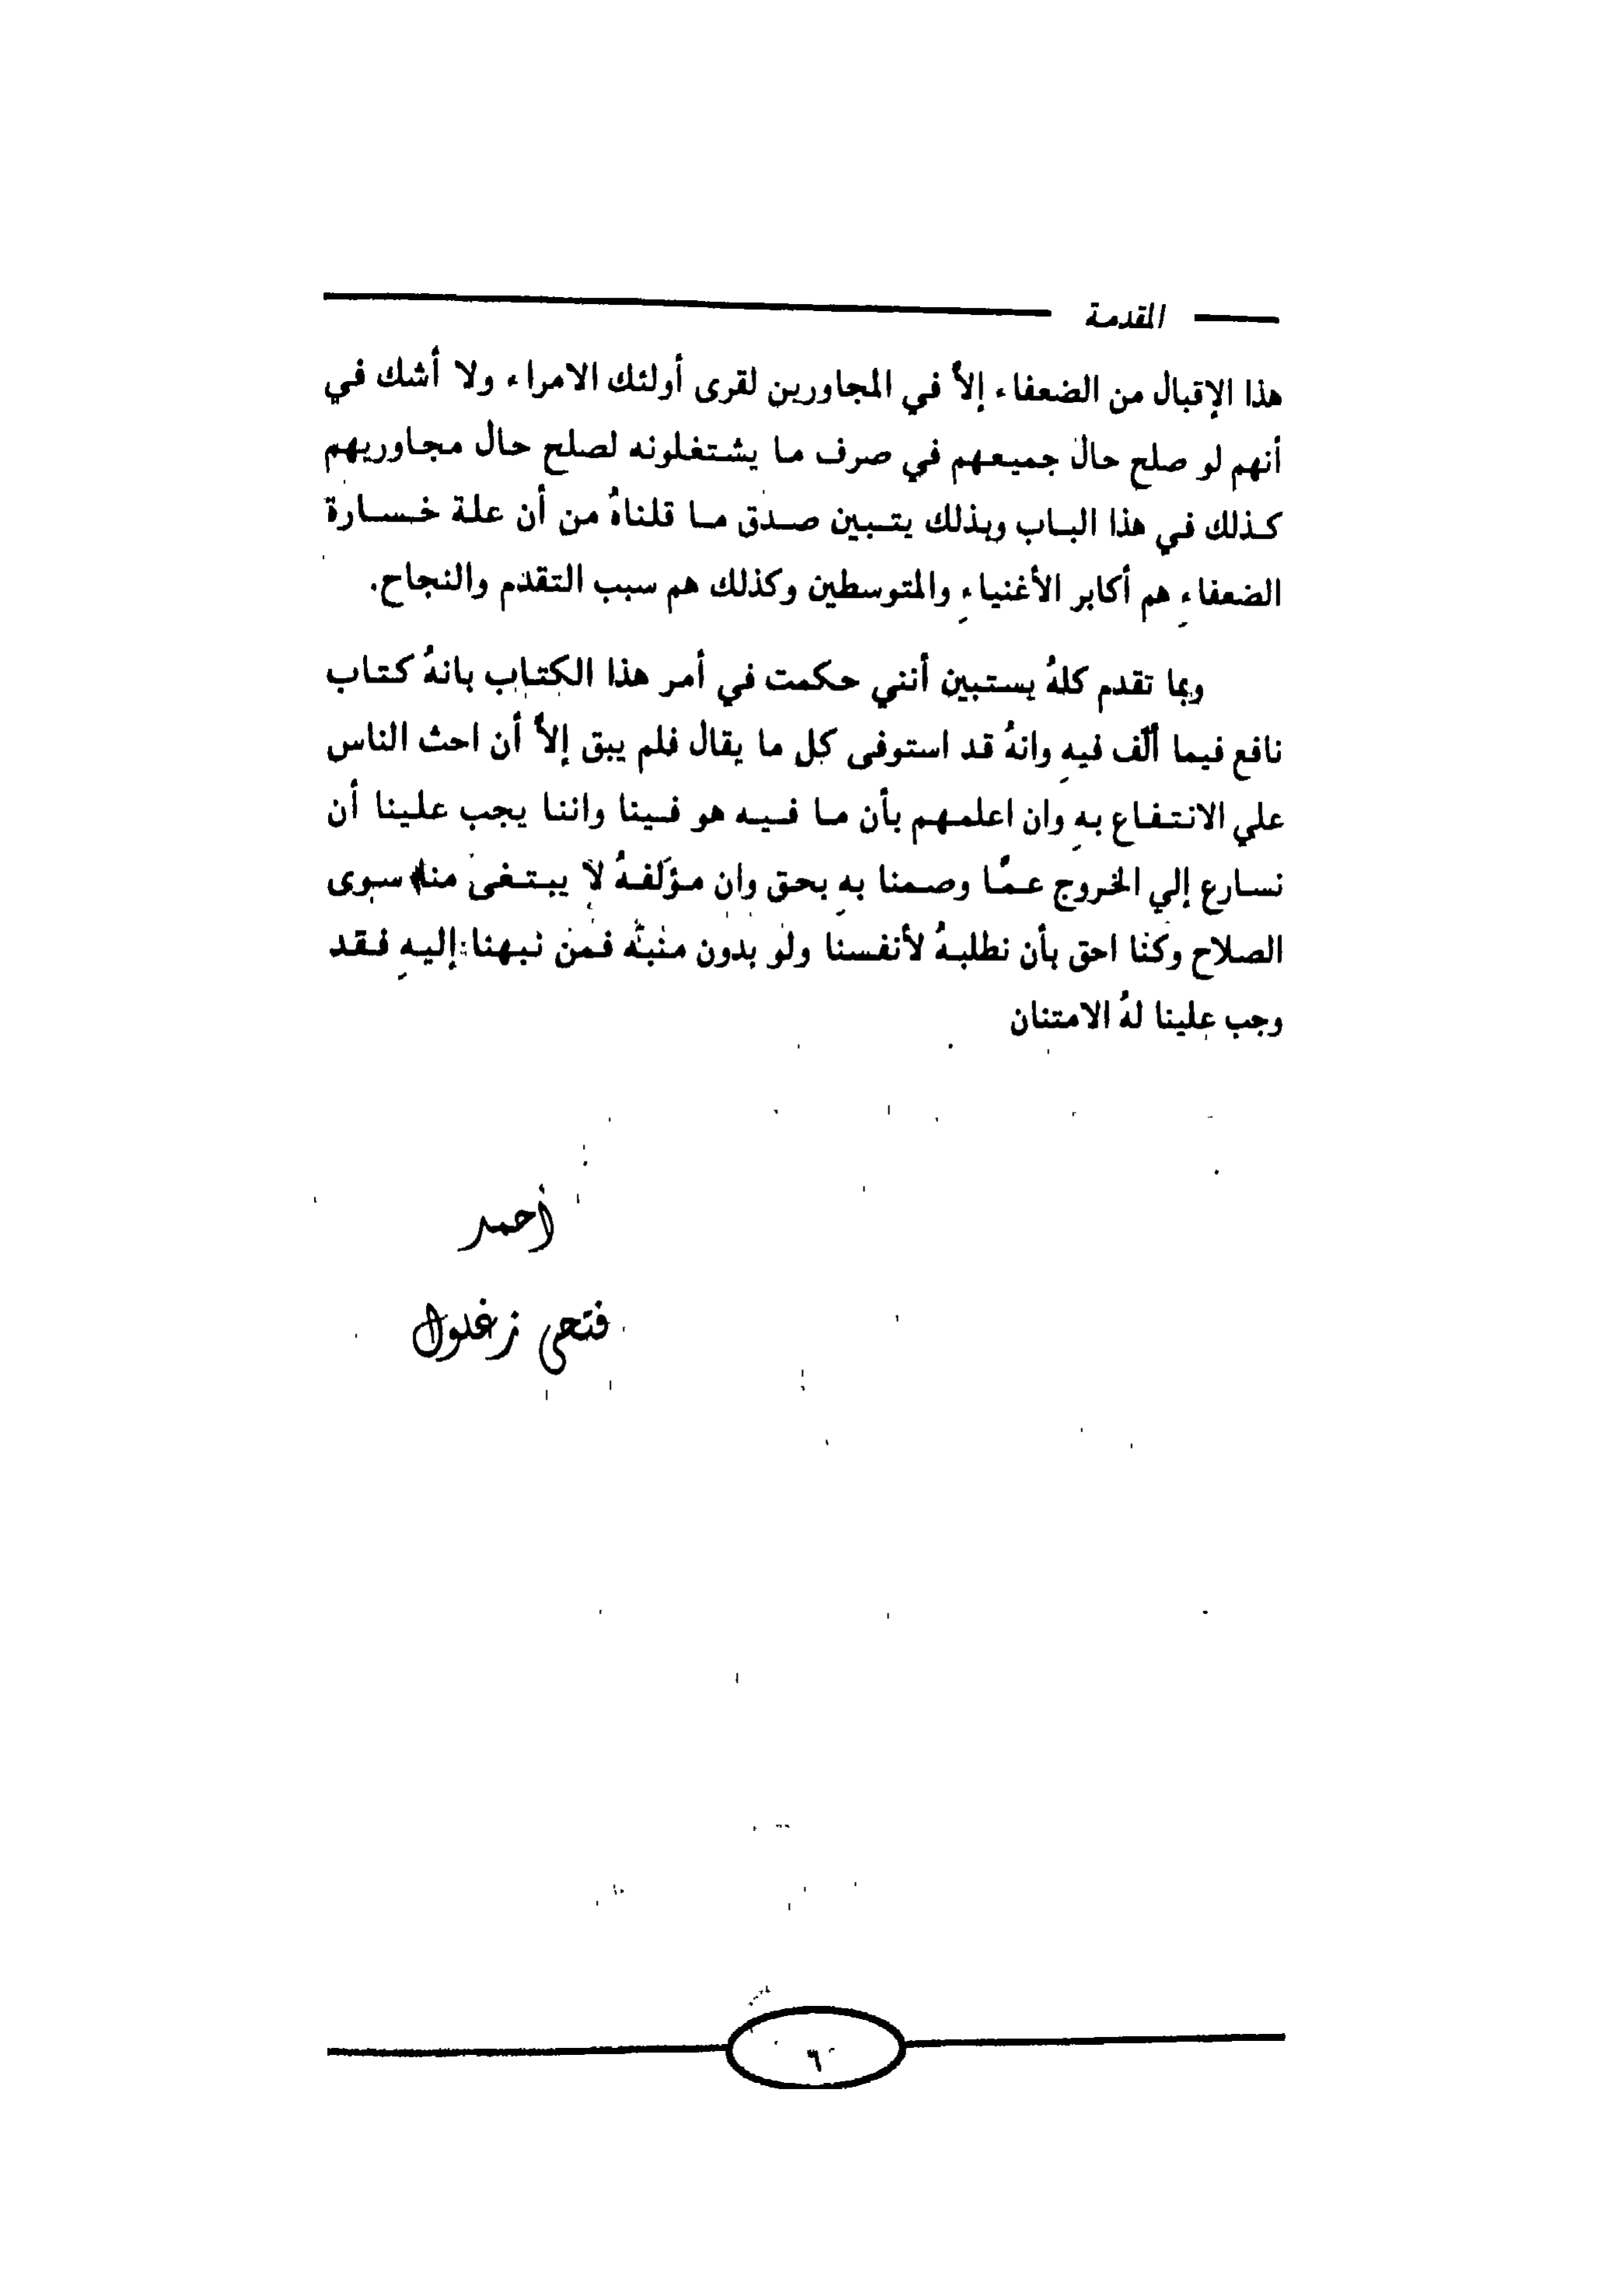 المقدمة
هذا الإقبال من الضعفاء إلاَّ في المجاورين لقرى أولئك الامراء ولا أشك في
أنهم لو صلح حال جميعهم في صرف ما يشتغلونه لصلح حال مجاوريهم
كذلك في هذا الباب وبذلك يتبين صدق ما قلناهُ من أن علة خسارة
الضعفاءِ هم أكابر الأغنياءِ والمتوسطين وكذلك هم سبب التقدم والنجاح.
وبما تقدم كلهُ يستبين أنني حكمت في أمر هذا الكتاب بانهُ كتاب
نافع فيما ألّف فيهِ وانهُ قد استوفى كل ما يقال فلم يبق إلاَّ أن احث الناس
علي الانتفاع بهِ وان اعلمهم بأن ما فيه هو فينا واننا يجب علينا أن
نسارع إلي الخروج عمَّا وصمنا بهِ بحق وان مؤلفهُ لا يبتغى منا سوى
الصلاح وكنا احق بأن نطلبهُ لأنفسنا ولو بدون منبّه فمن نبهنا إليهِ فقد
وجب علينا لهُ الامتنان
أحمد
فتحى زغلول
٦